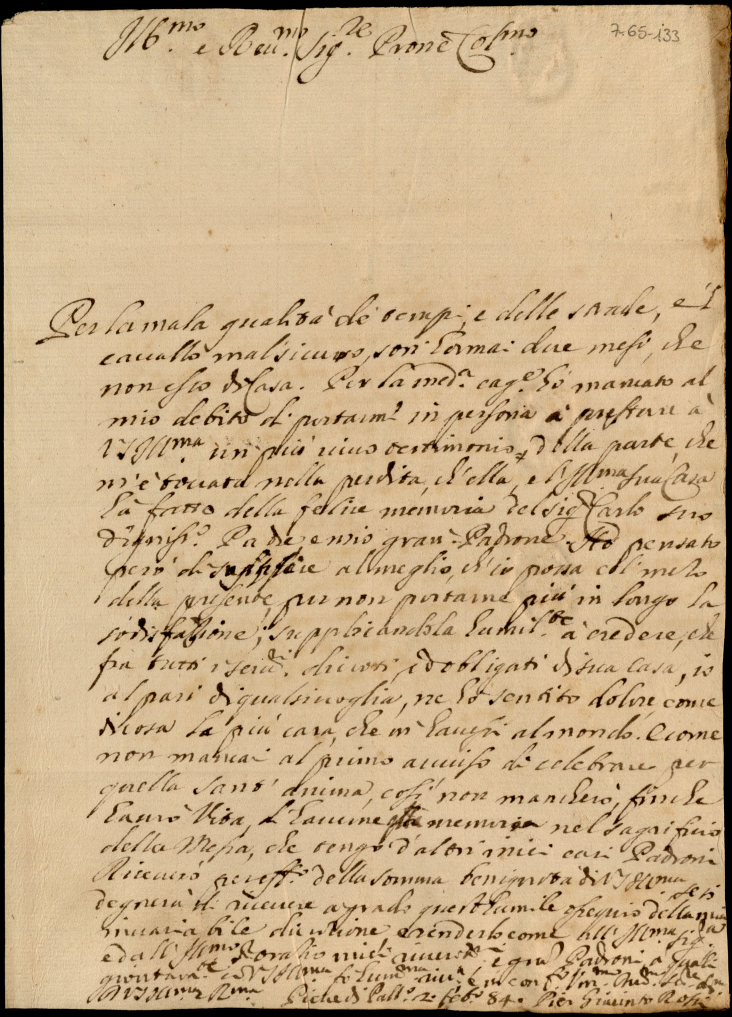 Ill.mo e Reu.mo Sig.re Prone Col.mo
7-65-133
Per la mala qualità de tempi, e delle strade, e 'l
cauallo mal sicuro, son hormai due mesi, che
non esco di Casa. Per la med.a cag.e hò mancato al
mio debito di portarmi in persona à prestare à
VS Ill.ma un più uiuo testimonio, della parte, che
m'è toccata nella perdita, ch'ella, e l'Ill.ma sua Casa
hà fatto della felice memoria del sig.r Carlo suo
dignis.o Padre e mio gran Padrone. Hò pensato
però di supplire al meglio, ch'io possa col mezo
della presente, per non portarne più in longo la
sodisfazione; supplicandola humil.te à credere, che
fra tutti i seru.i diuoti, ed obligati di sua casa, io
al pari di qualsiuoglia, ne hò sentito dolore, come
di cosa la più cara, che m'hauessi al mondo. E come
non mancai al primo auuiso di celebrare per
quella sant' anima, così non mancherò, finche
haurò Vita, d'hauerne memoria nel sagrificio
della Messa, che tengo d'altri miei cari Padroni
Riceuerò per eff.o della somma benignità di VS Ill.ma se si
degnerà di riceuere à grado quest'humile ossequio della mia
inuariabile diuotione e renderlo come all'Ill.ma Sig.ra
ed all' Ill.mo Sig. Oratio miei e gran Padroni, à quali
VS Ill.ma
Di VS Ill.ma e R.ma Pieue di Pall.o 20 feb.o 84. Pier Giacinto Rossi